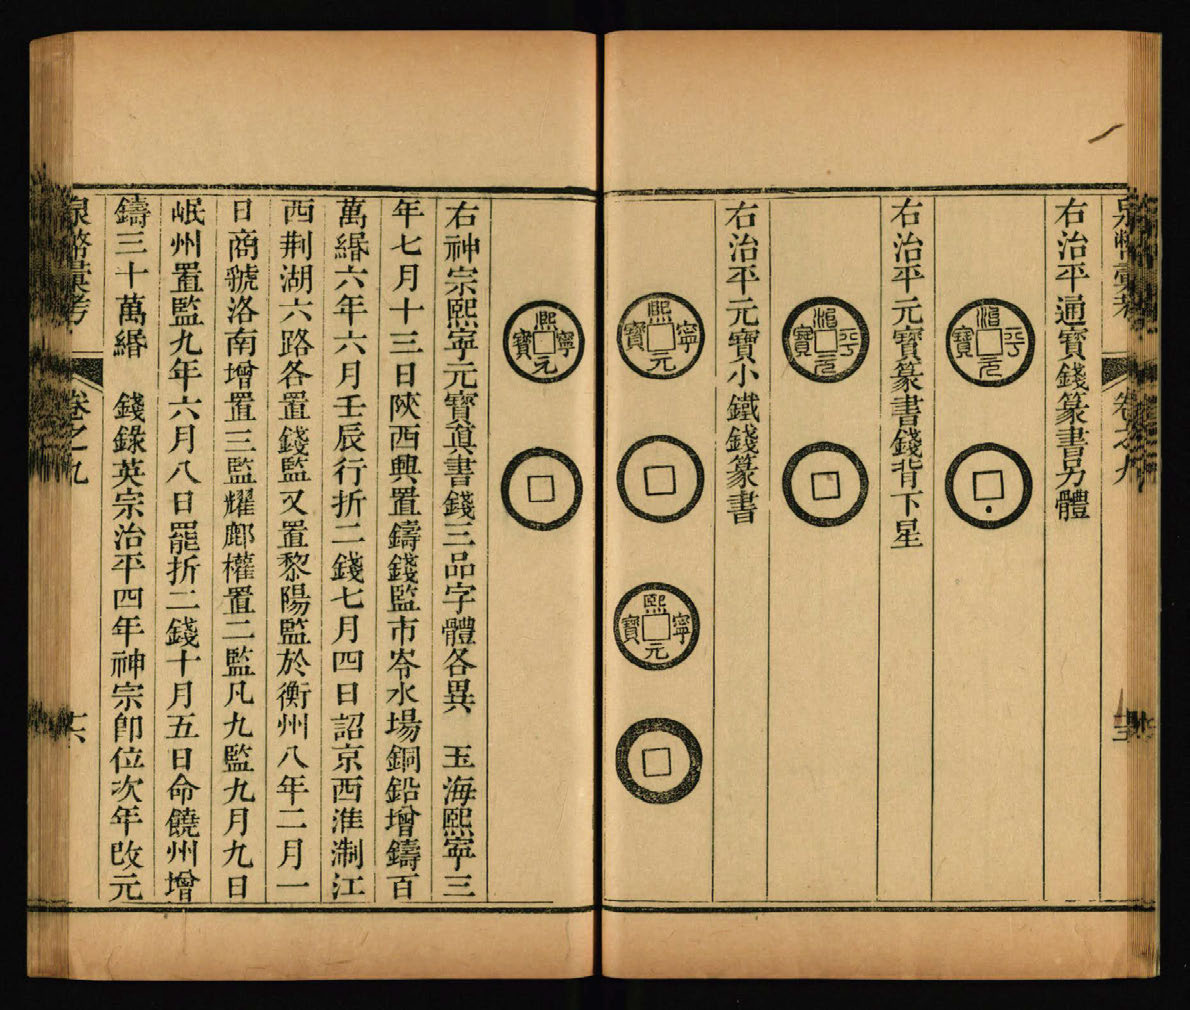 泉幣彙考 卷之九
右治平通寶錢篆書另體
治平元寶
右治平元寶篆書錢背下星
治平元寶
右治平元寶小鐵錢篆書
熙寧元寶
熙寧元寶
熙寧元寶
右神宗熙寧元寶真書錢三品字體各異 玉海熙寧三
年七月十三日陝西興置鑄錢監市岑水場銅鉛增鑄百
萬緡六年六月壬辰行折二錢七月四日詔京西淮淛江
西荆湖六路各置錢監又置黎陽監於衡州八年二月一
日商虢洛南增置三監耀鄜權置二監凡九監九月九日
岷州置監九年六月八日罷折二錢十月五日命饒州增
鑄三十萬緡 錢錄英宗治平四年神宗卽位次年改元
泉幣彙考 卷之九 十六